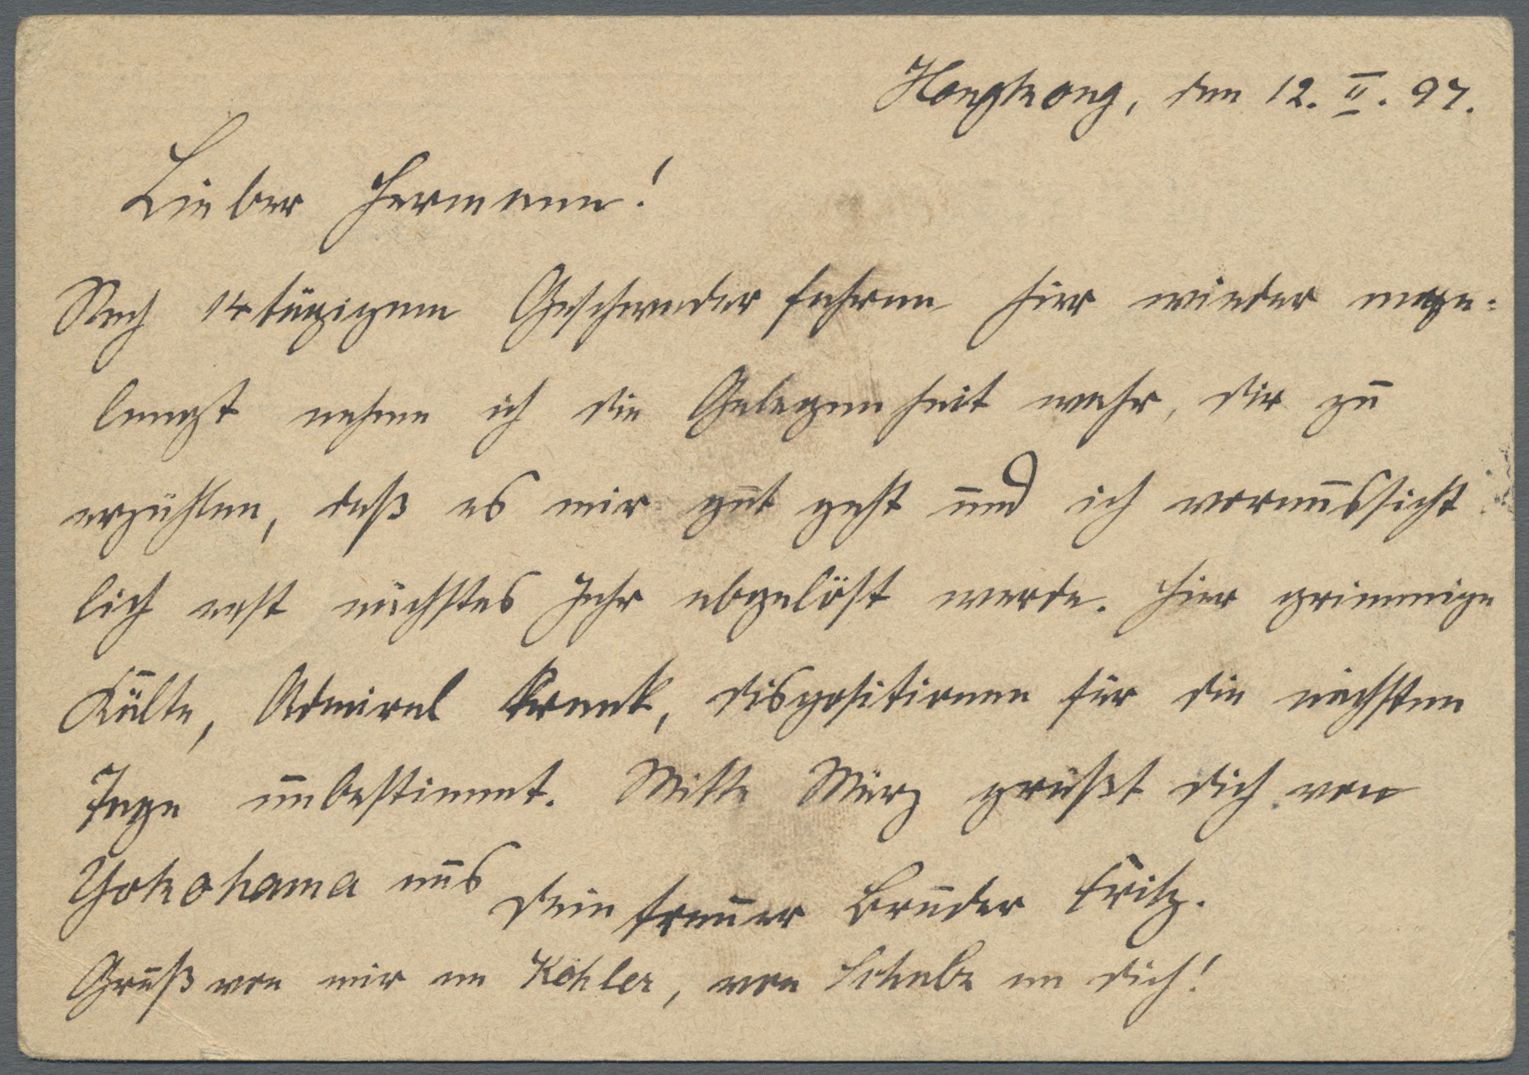 Hongkong, den 12. II. 97.
Lieber Hermann!
Nach 14tägigem Geschwader fahren hier wieder ange-
langt nehme ich die Gelegenheit wahr, dir zu
erzählen, daß es mir gut geht und ich voraussicht
lich erst nächstes Jahr abgelöst werde. Hier grimmige
Kälte, Admiral krank, dispositionen für die nächsten
Tage unbestimmt. Mitte März grüßt dich von
Yokohama aus
dein treuer Bruder Fritz.
Gruß von mir an Köhler, von Schabe an dich!